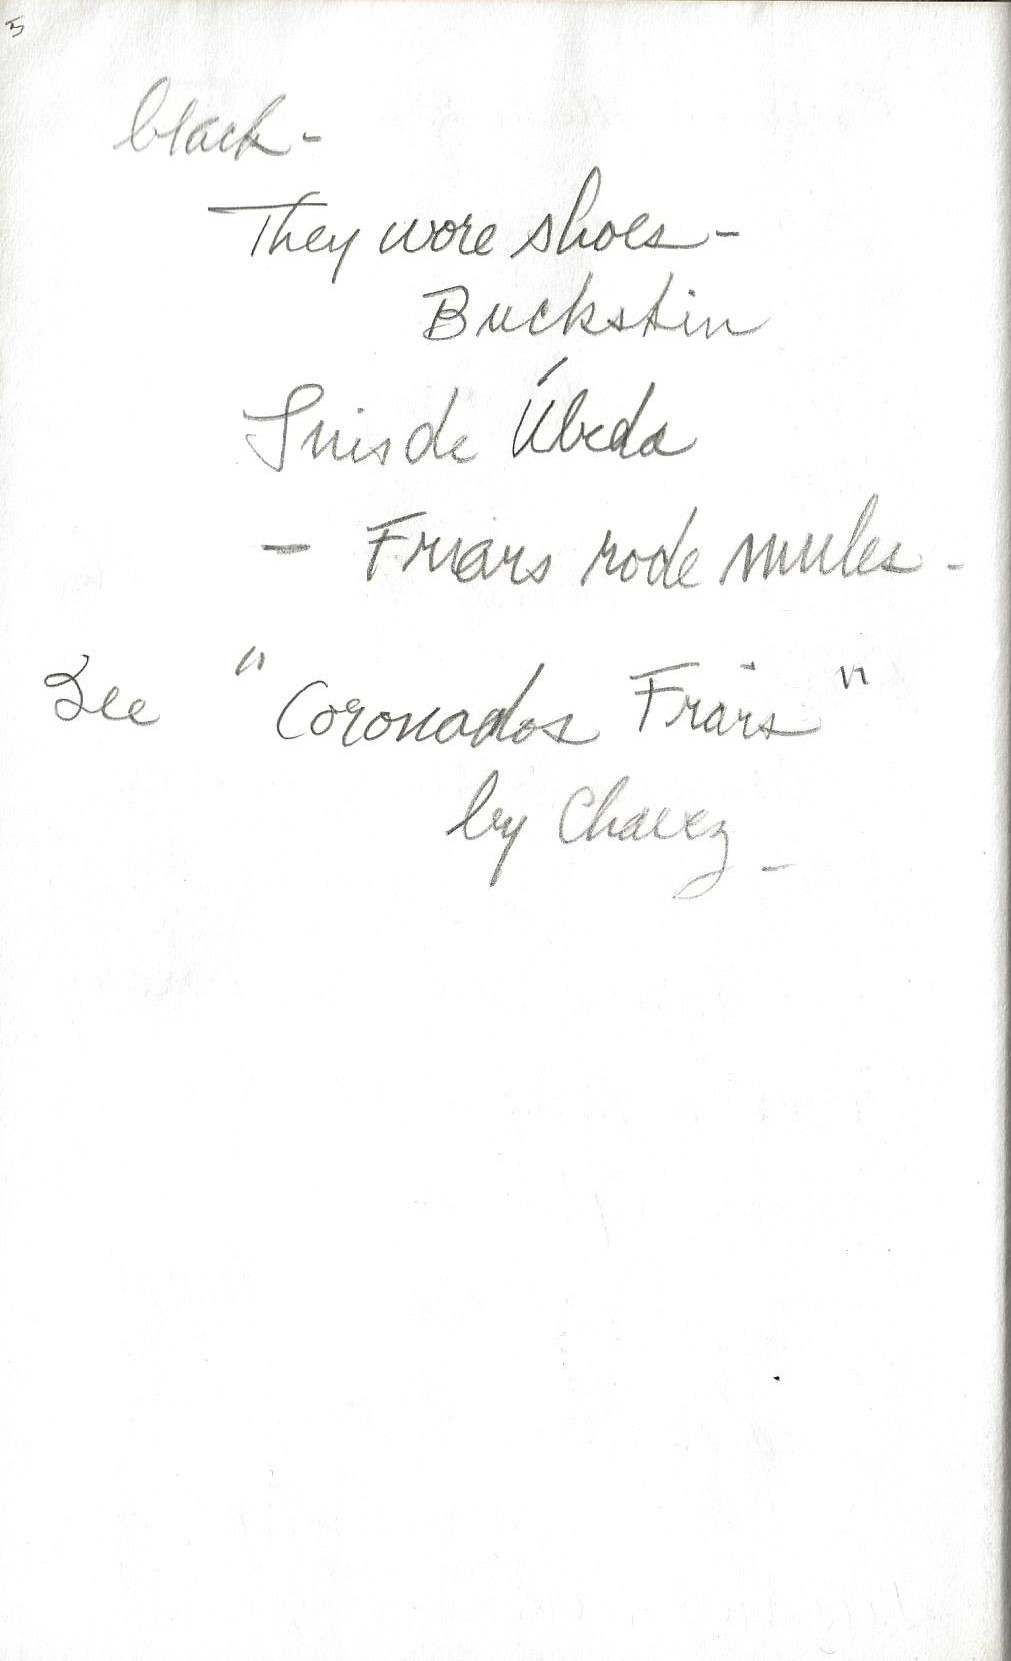 5
black -
They wore shoes -
Buckskin
Luis de Úbeda
- Friars rode mules -
See "Coronados Friars"
by Chavez -